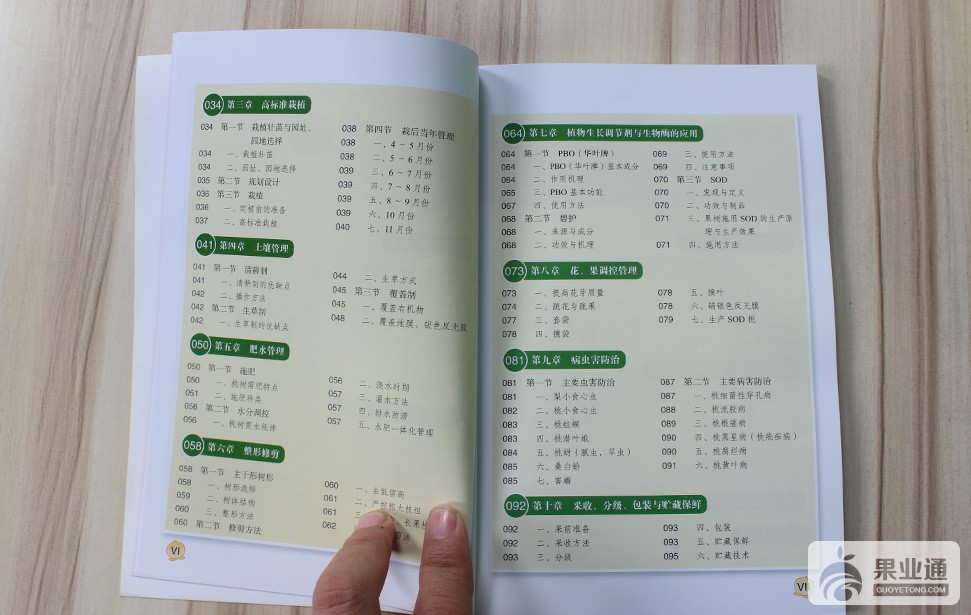 034 第三章 高标准栽植
034 第一节 栽植壮苗与园址、
园地选择
034 一、栽植壮苗
034 二、园址、园地选择
035 第二节 规划设计
036 第三节 栽植
036 一、定植前的准备
037 二、高标准栽植
038 第四节 栽后当年管理
038 一、4～5月份
038 二、5～6月份
039 三、6～7月份
039 四、7～8月份
039 五、8～9月份
039 六、10月份
040 七、11月份
041 第四章 土壤管理
041 第一节 清耕制
041 一、清耕制的优缺点
042 二、操作方法
042 第二节 生草制
042 一、生草制的优缺点
044 二、生草方式
045 第三节 覆盖制
045 一、覆盖有机物
048 二、覆盖地膜、银色反光膜
050 第五章 肥水管理
050 第一节 施肥
050 一、桃树需肥特点
051 二、施肥种类
056 第二节 水分调控
056 一、桃树需水规律
056 二、浇水时期
057 三、灌水方法
057 四、排水防涝
057 五、水肥一体化管理
058 第六章 整形修剪
058 第一节 主干形树形
058 一、树形选择
059 二、树体结构
060 三、整形方法
060 第二节 修剪方法
060 一、去低留高
061 二、严控粗大枝组
061 三、
长果枝
062
VI
064 第七章 植物生长调节剂与生物酶的应用
064 第一节 PBO（华叶牌）
064 一、PBO（华叶牌）基本成分
064 二、作用机理
065 三、PBO基本功能
067 四、使用方法
068 第二节 碧护
068 一、来源与成分
068 二、功效与机理
069 三、使用方法
069 四、注意事项
070 第三节 SOD
070 一、发现与定义
070 二、功效与制品
071 三、果树施用SOD的生产原
理与生产效果
071 四、施用方法
073 第八章 花、果调控管理
073 一、提高花芽质量
074 二、疏花与疏果
077 三、套袋
078 四、摘袋
078 五、摘叶
078 六、铺银色反光膜
079 七、生产SOD桃
081 第九章 病虫害防治
081 第一节 主要虫害防治
081 一、梨小食心虫
082 二、桃小食心虫
083 三、桃蛀螟
083 四、桃潜叶蛾
084 五、桃蚜（腻虫，旱虫）
085 六、桑白蚧
085 七、害螨
087 第二节 主要病害防治
087 一、桃细菌性穿孔病
088 二、桃流胶病
089 三、桃根癌病
090 四、桃黑星病（桃疮痂病）
090 五、桃腐烂病
091 六、桃黄叶病
092 第十章 采收、分级、包装与贮藏保鲜
092 一、采前准备
092 二、采收方法
093 三、分级
093 四、包装
093 五、贮藏保鲜
095 六、贮藏技术
果业通
GUOYETONG.COM